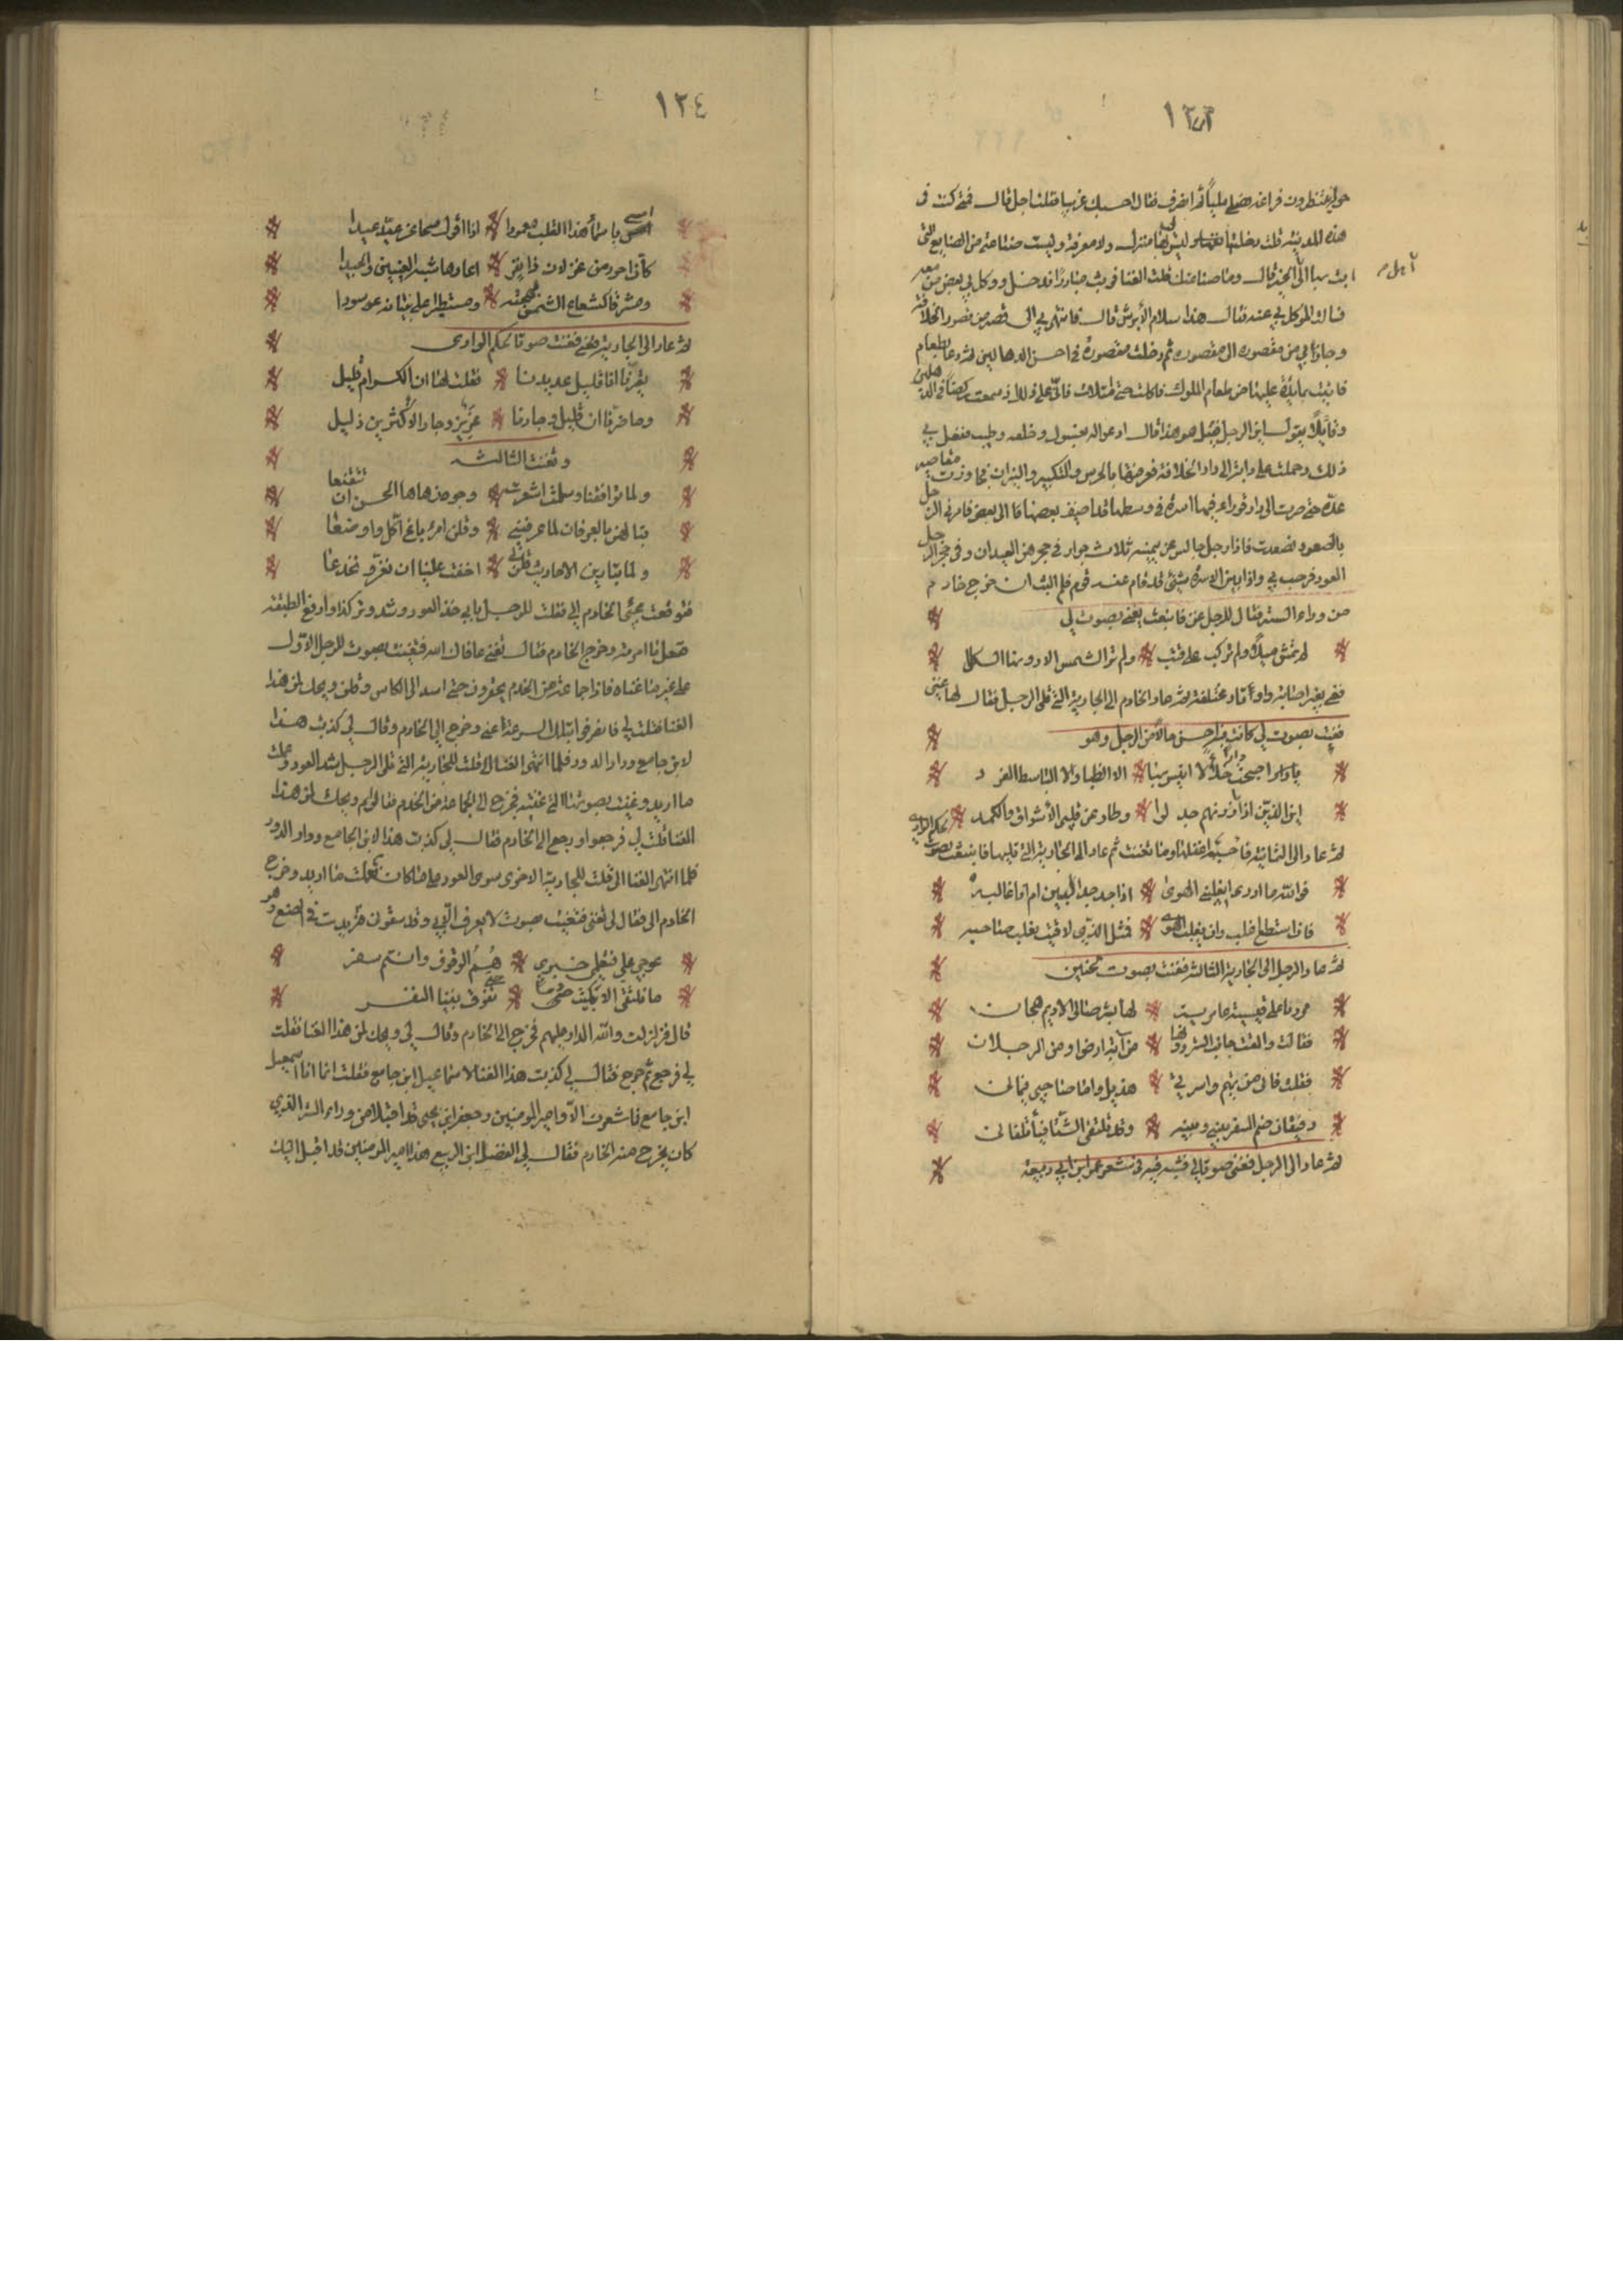 ١٢٣
حوله ينتظرون فراغه فصلى مليا ثم انصرف فقال احسبك غريبا فقلت اجل قال فمتى كنت في
هذه المدينة قلت دخلتها وليس لي بها منزل ولا معرفة وليست صناعتي من الصنايع التي
يمت بها الى اهل الخير قال وما صناعتك قلت الغنا فوثب مبادرا فدخل ووكل بي بعض من معه
فسالت الموكل بي عنه فقال هذا سلام الأبرش قال فانتهى بي الى قصر من قصور الخلافة
وجاوز بي من مقصوره الى مقصوره ثم دخلت مقصورة في احسن الدهاليز ثم دعا بطعام
فاتيت بمايدة عليها من طعام الملوك فاكلت حتى امتلات فاني على ذلك اذ سمعت ركضا في الدهليز
وقايلا يقول اين الرجل قيل هو هذا قال ادعوا له بغسول وخلعه وطيب ففعل بي
ذلك وحملت على دابة الى دار الخلافة فعرفتها بالحرس والتكبير والنيران فجاوزت مقاصير
عدة حتى صرت الى دار قوراء فيها اسرة في وسطها قد اضيف بعضها الى بعض فامرني الرجل
بالصعود فصعدت فاذا رجل جالس عن يمينه ثلاث جوار في حجرهن العيدان وفي حجر الرجل
العود فرحب بي واذا بين الاسرة شيئ قد قام عنه قوم فلم البث ان خرج خادم
من وراء الستر فقال للرجل غن فانبعث يغني بصوت لي
لم تمش ميلا ولم تركب على قتب ولم تر الشمس الا دونها الكلل
فغنى بغير اصابة واوتار مختلفة ثم عاد الخادم الى الجارية التي تلي الرجل فقال لها غني
فغنت بصوت لي كانت فيه احسن حالا من الرجل وهو
يا دار اضحت خلاء لا انيس بها الا الظباء والا الناشط الفرد
اين الذين اذا ما زرتهم جدلوا وطار عن قلبي الأشواق والكمد
ثم عاد الى الثانية فاحسبه اغفلها وما تغنت ثم عاد الى الجارية التي تليها فانبعثت بصوت لحكم الوادي
فوالله ما ادري ايغلبني الهوى اذا جد جد البين ام انا غالبه
فان استطع اغلب وان يغلب الهوى فمثل الذي لاقيت يغلب صاحبه
ثم عاد الرجل الى الجارية الثالثة فغنت بصوت لحنين
مررنا على قيسية عامرية لها بشر صافي الاديم هجان
فقالت والقت جانب الستر دونها من اية ارض او من الرجلان
فقلت فاني من تميم واسرتي هذيل واما صاحبي فيماني
رفيقان ضم السفر بيني وبينه وقد يلتقي الشتا فيأتلفان
ثم عاد الى الرجل فغنى صوتا لي فشبه فيه في شعر عمر ابن ابي ربيعه
١٢٤
امسى باسمأ هذا القلب معمودا اذا أقول صحا عن عيده عيدا
كأن احور من غزلان ذا بقر اعارها شبه العينين والجيدا
ومشرقا كشعاع الشمس بهجته ومستطيرا على بتانه عوسودا
ثم عاد الى الجارية فغنت صوتا لحكم الوادي
يعيرنا انا قليل عديدنا فقلت لها ان الكرام قليل
وما ضرنا انا قليل وجارنا عزيز وجار الأكثرين ذليل
وتغنت الثالثه
ولما تواقفنا وسلمت اشرقت وجوه زهاها الحسن ان تتقنعا
تبالهن بالعرفان لما عرفنني وقلن امرؤ باغ اكل واوضعا
ولما تنازعن الاحاديث قلن لي اخفت علينا ان نغر ونخدعا
فتوقعت مجئ الخادم الي فقلت للرجل بابي خذ العود وشد وتر كذا وارفع الطبقة
ففعل ما امرته وخرج الخادم فقال تغن عافاك الله فتغنيت بصوت الرجل الاول
على غير ما غناه فاذا جماعة من الخدم يحضرون حتى اسد الى الكاس وقلن ويحك لمن هذا
الغنا فقلت لي فانصرفوا بتلك السرعة اعني وخرج الي الخادم وقال لي كذبت هذا
لابن جامع ودار الدور فلما انتهى الغنا الي قلت للجارية التي تلي الرجل شد العود وعلمت
ما اريد وغنيت بصوتها الذي غنته فخرج الي الجماعة من الخدم فقالوا لي ويحك لمن هذا
الغنا قلت لي فرجعوا ورجع الي الخادم فقال لي كذبت هذا لابن الجامع ودار الدور
فلما انتهى الغنا الي قلت للجارية الاخرى سوي العود على ما كان فعلمت ما اريد وخرج
الخادم الي فقال لي تغنى فتغنيت صوت لا يعرف الا بي وهو
عوجي علي فسلمي خبري فيم الوقوف وانتم سفر
ما نلتقي الا ثلاث منى حتى يفرق بيننا النفر
قال فزلزلت والله الدار عليهم فخرج الي الخادم وقال لي ويحك لمن هذا الغنا فقلت
لي فرجع ثم خرج فقال لي كذبت هذا الغنا لاسماعيل ابن جامع فقلت انما انا اسمعيل
ابن جامع فما شعرت الا وامير المومنين وجعفر ابن يحيى قد اقبلا من وراء الستر الذي
كان يخرج منه الخادم فقال لي الفضل ابن الربيع هذا امير المومنين قد اقبل اليك